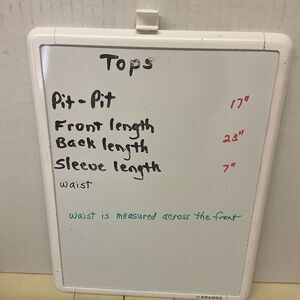 Tops
Pit-Pit 17"
Front length
Back length 23"
Sleeve length 7"
waist
waist is measured across the front
U BRANDS